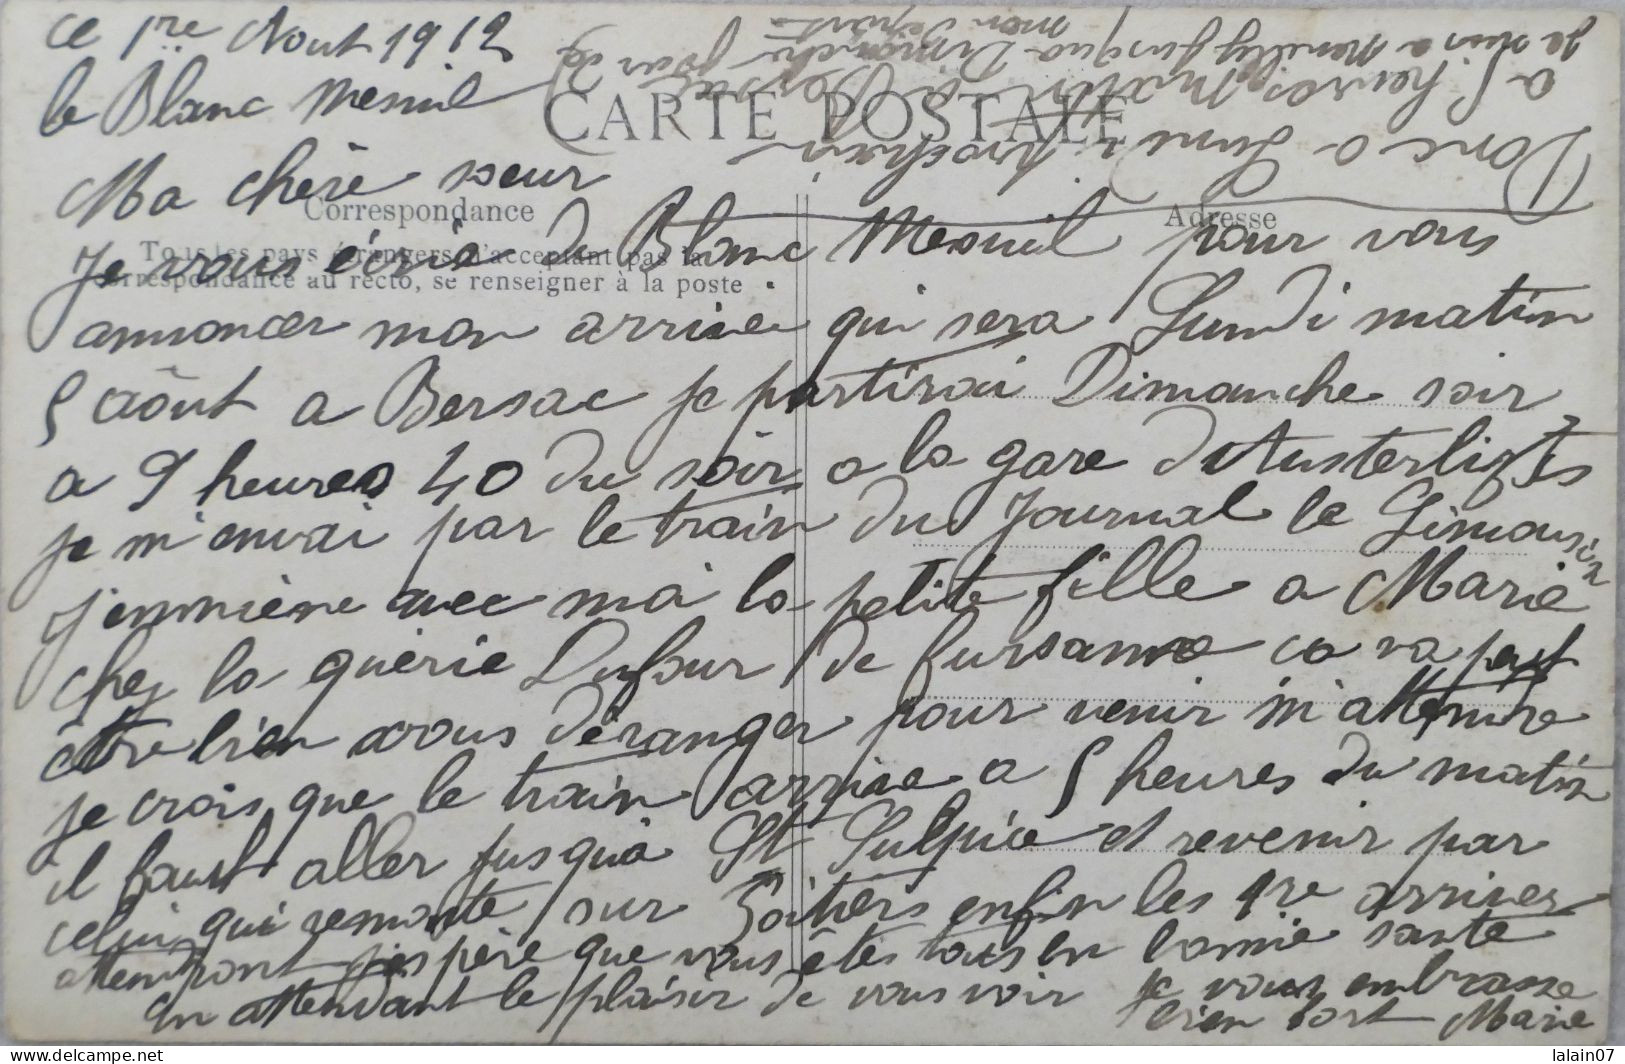 ce 1re Aout 1912
le Blanc Mesnil
CARTE POSTALE
Ma chère sœur
Correspondance
Adresse
Tous les pays étrangers n'acceptant pas la
correspondance au recto, se renseigner à la poste
Je vous écrie du Blanc Mesnil pour vous
annoncer mon arrivé qui sera Lundi matin
5 aôut a Bersac je partirai Dimanche soir
a 9 heures 40 du soir a la gare d'Austerlizts
je m'envai par le train du Journal le Limousin
j'emmène avec moi la petite fille a Marie
chez la guerie Dufour de fursanne ca va peut
être bien vous déranger pour venir m'attendre
je crois que le train arrive a 5 heures du matin
il faut aller jusqu'à St Sulpice et revenir par
celui qui remonte sur Poitiers enfin les 1re arriver
attendront j'espère que vous êtes tous en bonne santé
En attendant le plaisir de vous voir je vous embrasse
bien fort Marie
Donc a Lundi prochain
a 5 heures Matin a Bersac
je suis a Mesnil jusqu'a Dimanche jour de
mon départ
lalain07